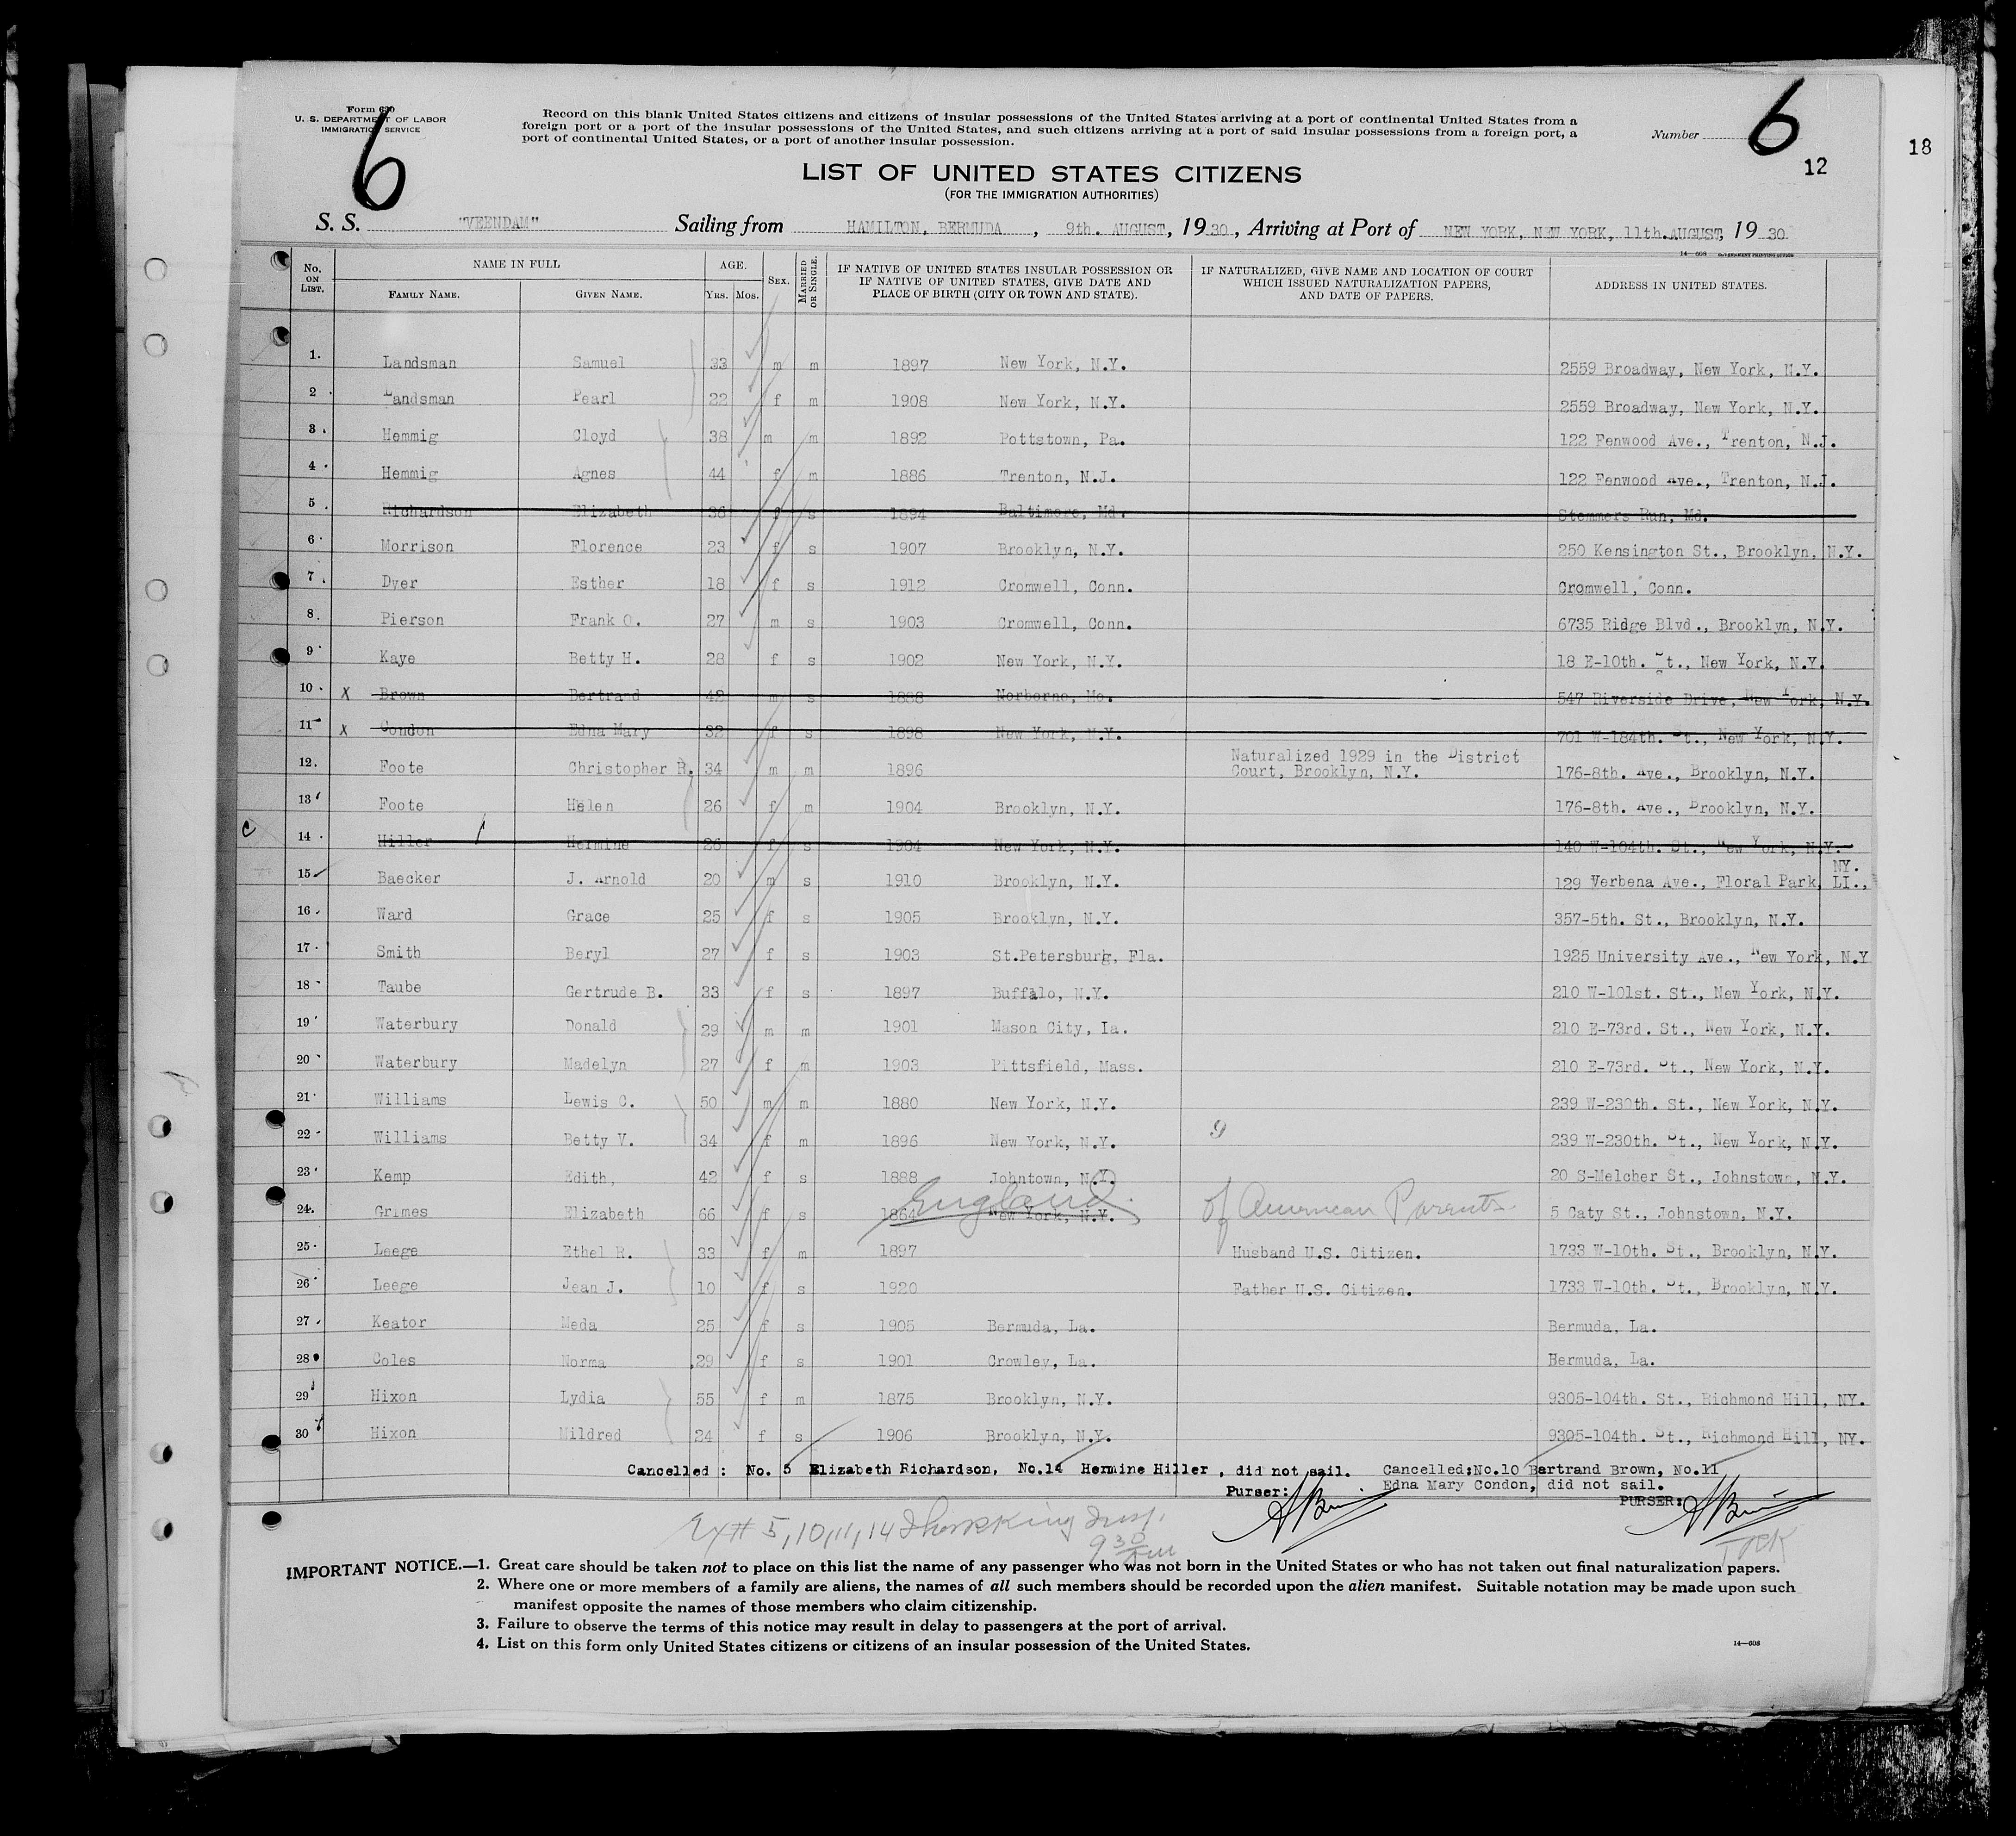 Form 630
U. S. DEPARTMENT OF LABOR
IMMIGRATION SERVICE
6
Record on this blank United States citizens and citizens of insular possessions of the United States arriving at a port of continental United States from a
foreign port or a port of the insular possessions of the United States, and such citizens arriving at a port of said insular possessions from a foreign port, a
port of continental United States, or a port of another insular possession.
Number 6
12
18
LIST OF UNITED STATES CITIZENS
(FOR THE IMMIGRATION AUTHORITIES)
S. S. "VEENDAM" Sailing from HAMILTON, BERMUDA, 9th. AUGUST, 1930, Arriving at Port of NEW YORK, NEW YORK, 11th.AUGUST, 1930
14—608 GOVERNMENT PRINTING OFFICE
No. ON LIST. NAME IN FULL FAMILY NAME. GIVEN NAME. AGE. YRS. MOS. SEX. MARRIED OR SINGLE. IF NATIVE OF UNITED STATES INSULAR POSSESSION OR IF NATIVE OF UNITED STATES, GIVE DATE AND PLACE OF BIRTH (CITY OR TOWN AND STATE). IF NATURALIZED, GIVE NAME AND LOCATION OF COURT WHICH ISSUED NATURALIZATION PAPERS, AND DATE OF PAPERS. ADDRESS IN UNITED STATES.
1. Landsman Samuel 33 m m 1897 New York, N.Y. 2559 Broadway, New York, N.Y.
2. Landsman Pearl 22 f m 1908 New York, N.Y. 2559 Broadway, New York, N.Y.
3. Hemmig Cloyd 38 m m 1892 Pottstown, Pa. 122 Fenwood Ave., Trenton, N.J.
4. Hemmig Agnes 44 f m 1886 Trenton, N.J. 122 Fenwood Ave., Trenton, N.J.
5. Richardson Elizabeth 36 f s 1894 Baltimore, Md. Stemmers Run, Md.
6. Morrison Florence 23 f s 1907 Brooklyn, N.Y. 250 Kensington St., Brooklyn, N.Y.
7. Dyer Esther 18 f s 1912 Cromwell, Conn. Cromwell, Conn.
8. Pierson Frank O. 27 m s 1903 Cromwell, Conn. 6735 Ridge Blvd., Brooklyn, N.Y.
9. Kaye Betty H. 28 f s 1902 New York, N.Y. 18 E-10th. St., New York, N.Y.
10. x Brown Bertrand 42 m s 1888 Norborne, Mo. 547 Riverside Drive, New York, N.Y.
11 x Condon Edna Mary 32 f s 1898 New York, N.Y. 701 W-184th. St., New York, N.Y.
12. Foote Christopher R. 34 m m 1896 Naturalized 1929 in the District Court, Brooklyn, N.Y. 176-8th. Ave., Brooklyn, N.Y.
13 Foote Helen 26 f m 1904 Brooklyn, N.Y. 176-8th. Ave., Brooklyn, N.Y.
c 14. Hiller Hermine 26 f s 1904 New York, N.Y. 140 W-104th. St., New York, N.Y.
15 Baecker J. Arnold 20 m s 1910 Brooklyn, N.Y. 129 Verbena Ave., Floral Park, LI., NY.
16. Ward Grace 25 f s 1905 Brooklyn, N.Y. 357-5th. St., Brooklyn, N.Y.
17. Smith Beryl 27 f s 1903 St.Petersburg, Fla. 1925 University Ave., New York, N.Y
18 Taube Gertrude B. 33 f s 1897 Buffalo, N.Y. 210 W-101st. St., New York, N.Y.
19 Waterbury Donald 29 m m 1901 Mason City, Ia. 210 E-73rd. St., New York, N.Y.
20 Waterbury Madelyn 27 f m 1903 Pittsfield, Mass. 210 E-73rd. St., New York, N.Y.
21. Williams Lewis C. 50 m m 1880 New York, N.Y. 239 W-230th. St., New York, N.Y.
22 Williams Betty V. 34 f m 1896 New York, N.Y. 239 W-230th. St., New York, N.Y.
23 Kemp Edith, 42 f s 1888 Johntown, N.Y. 20 S-Melcher St., Johnstown, N.Y.
24. Grimes Elizabeth 66 f s 1864 New York, N.Y. England of American Parents 5 Caty St., Johnstown, N.Y.
25. Leege Ethel R. 33 f m 1897 Husband U.S. Citizen. 1733 W-10th. St., Brooklyn, N.Y.
26 Leege Jean J. 10 f s 1920 Father U.S. Citizen. 1733 W-10th. St., Brooklyn, N.Y.
27. Keator Meda 25 f s 1905 Bermuda, La. Bermuda, La.
28 Coles Norma 29 f s 1901 Crowley, La. Bermuda, La.
29 Hixon Lydia 55 f m 1875 Brooklyn, N.Y. 9305-104th. St., Richmond Hill, NY.
30 Hixon Mildred 24 f s 1906 Brooklyn, N.Y. 9305-104th. St., Richmond Hill, NY.
Cancelled : No. 5 Elizabeth Richardson, No.14 Hermine Hiller , did not sail. Cancelled:No.10 Bertrand Brown, No.11
Purser: Edna Mary Condon, did not sail.
PURSER:
Ex# 5,10,11,14 Insp.
9 30 am
IMPORTANT NOTICE.—1. Great care should be taken not to place on this list the name of any passenger who was not born in the United States or who has not taken out final naturalization papers.
2. Where one or more members of a family are aliens, the names of all such members should be recorded upon the alien manifest. Suitable notation may be made upon such
manifest opposite the names of those members who claim citizenship.
3. Failure to observe the terms of this notice may result in delay to passengers at the port of arrival.
4. List on this form only United States citizens or citizens of an insular possession of the United States.
14—608